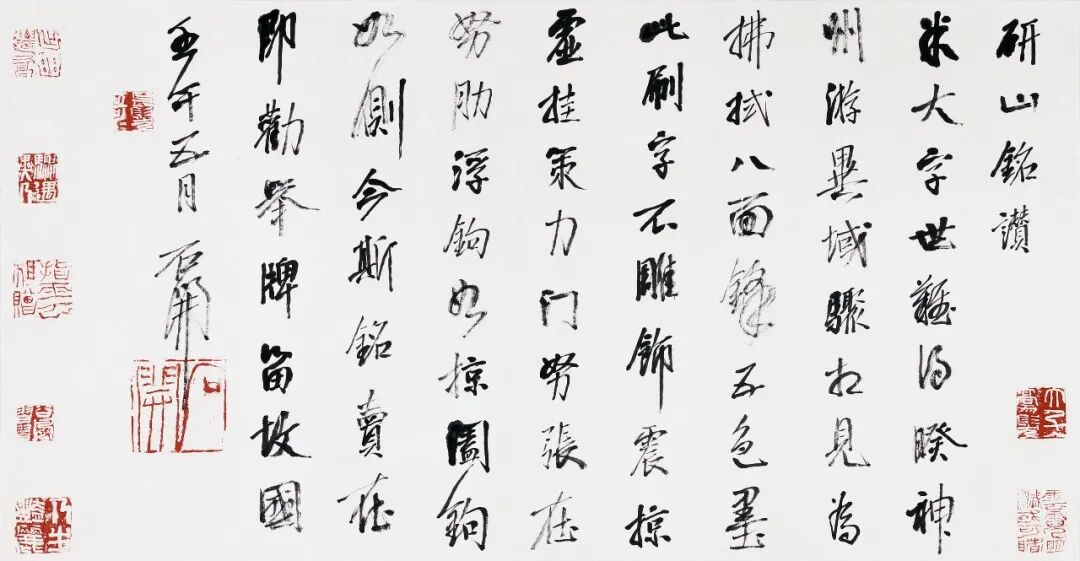 研山銘讚
米大字世難得睽神
州游異域驟相見為
拂拭八面鋒五色墨
此刷字不雕飾震掠
虛挂策力門努張在
努肋浮鉤如掠圖鉤
如側今斯銘賣在
即勸舉牌留故國
壬午五月 石開
石開